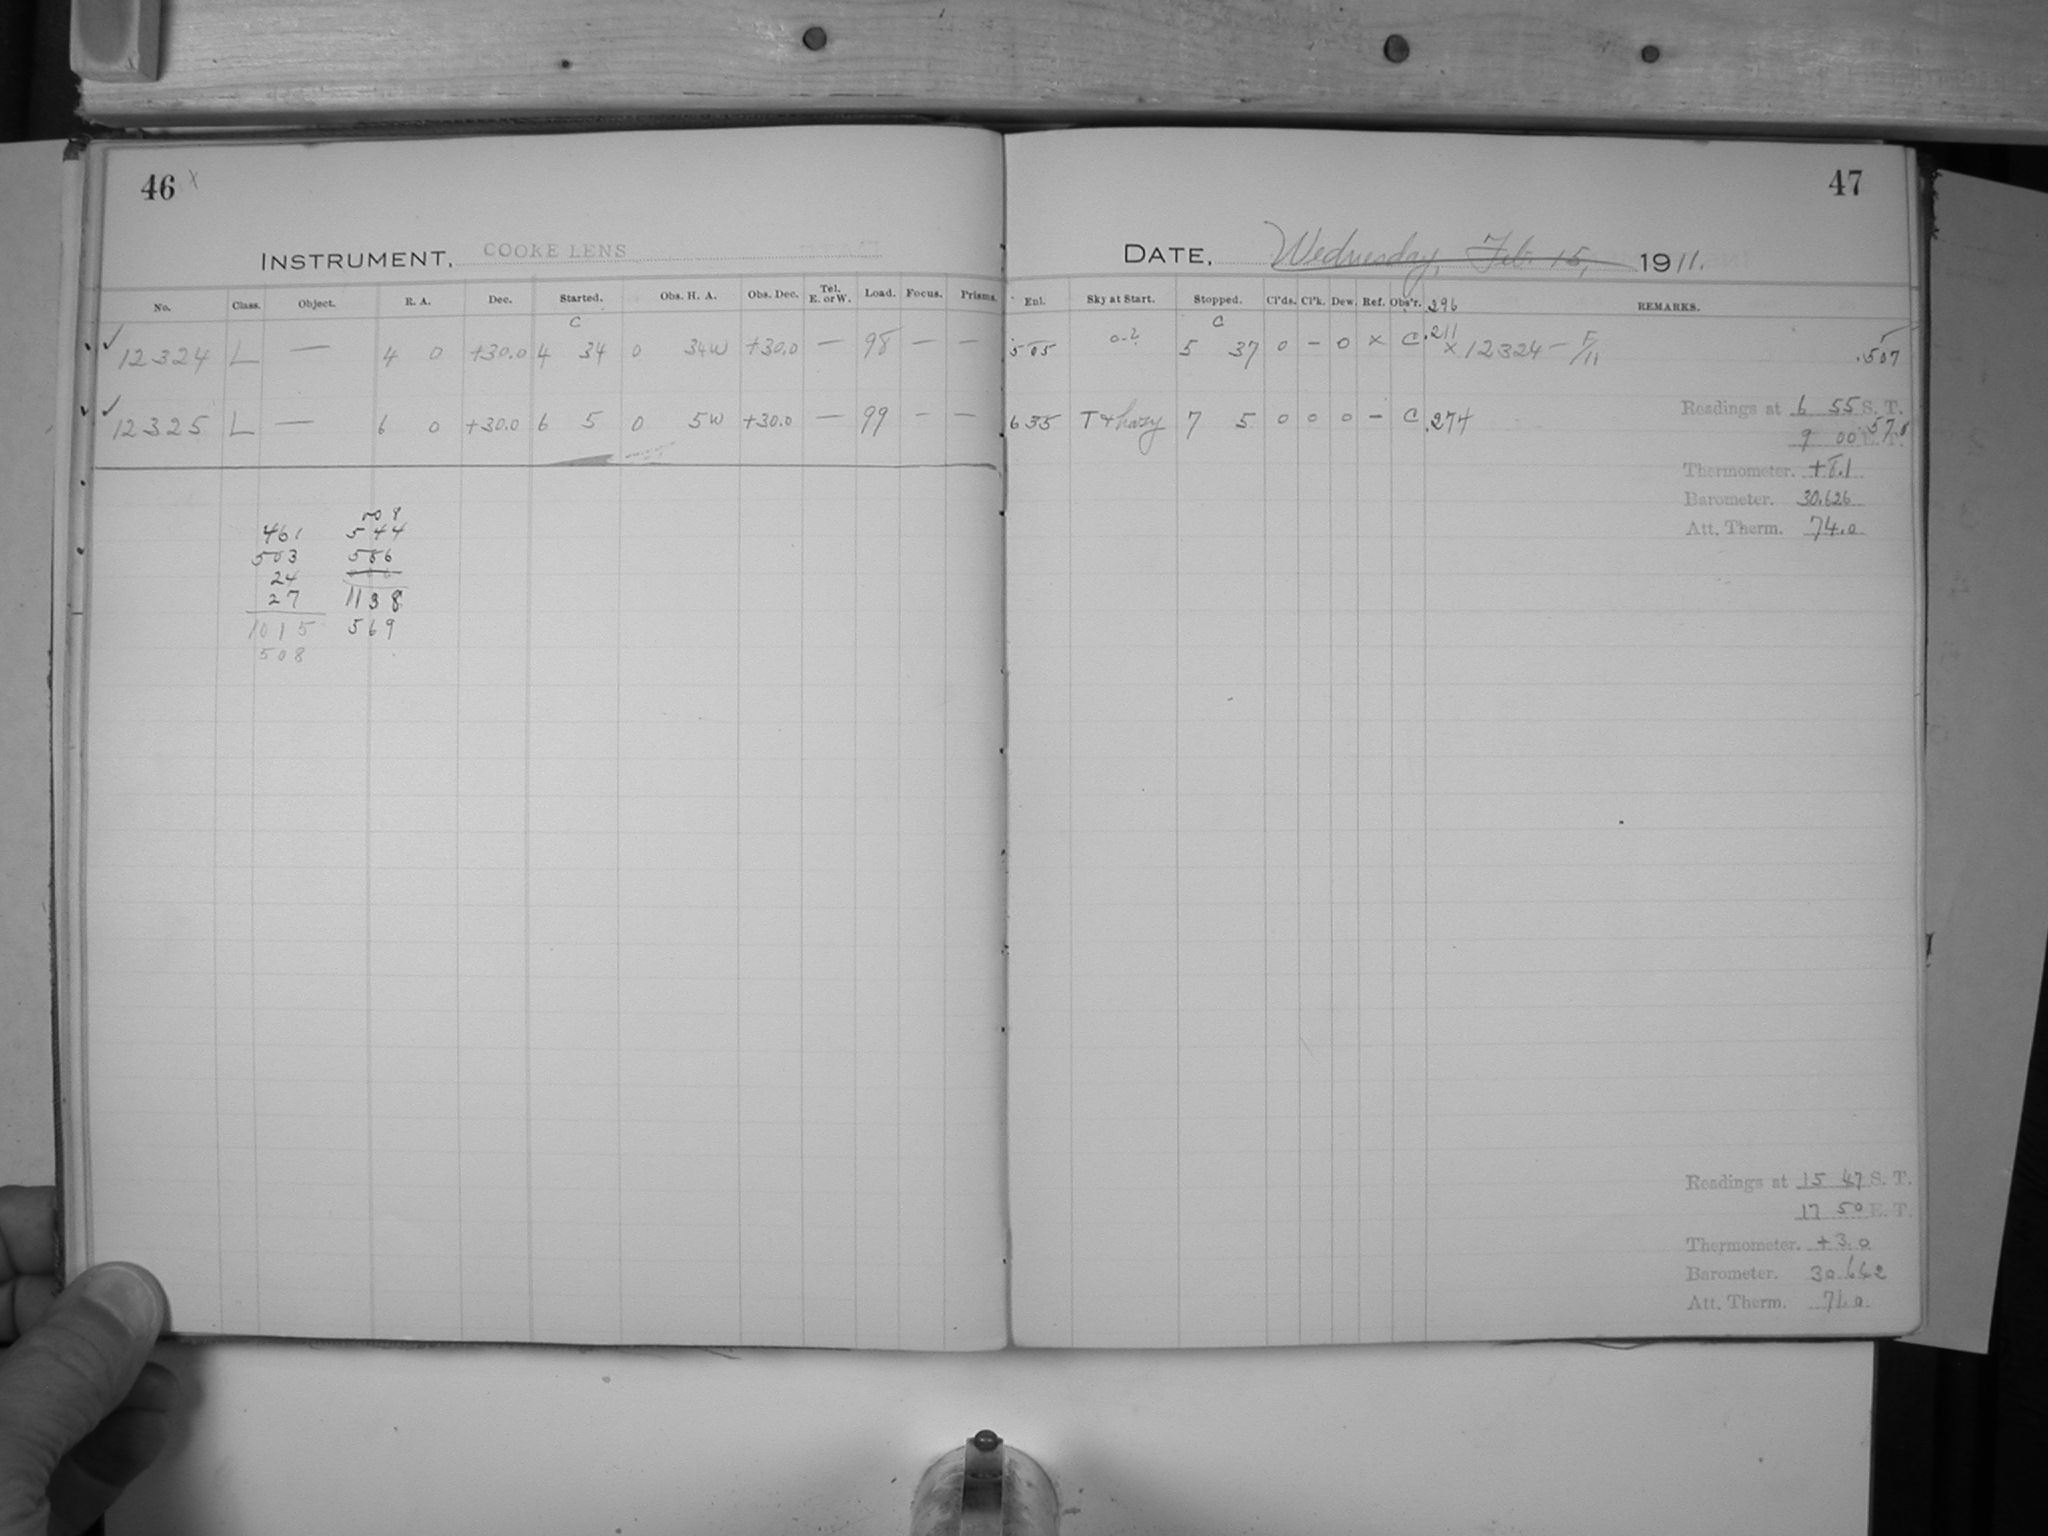 46 x
INSTRUMENT. COOKE LENS
No. Class. Object. R. A. Dec. Started. Obs. H. A. Obs. Dec. Tel. E. or W. Load. Focus. Prisms.
C
✓ 12324 L — 4 0 +30.0 4 34 0 34W +30.0 — 98 — —
✓ 12325 L — 6 0 +30.0 6 5 0 5W +30.0 — 99 — —
461
503
24
27
1015
508
544
1138
569
47
DATE, Wednesday, Feb. 15, 1911.
Enl. Sky at Start. Stopped. Cl'ds. Cl'k. Dew. Ref. Obs'r. 296 REMARKS.
C
505 0-2 5 37 0 — 0 x C .211 x 12324 — F/11 .507
635 T & hazy 7 5 0 0 0 — C .274
Readings at 6 55 S. T.
9 00 E. T.
Thermometer.
Barometer. 30.626
Att. Therm. 74.0
Readings at 15 47 S. T.
17 50 E. T.
Thermometer. +3.0
Barometer. 30.642
Att. Therm. 71.0